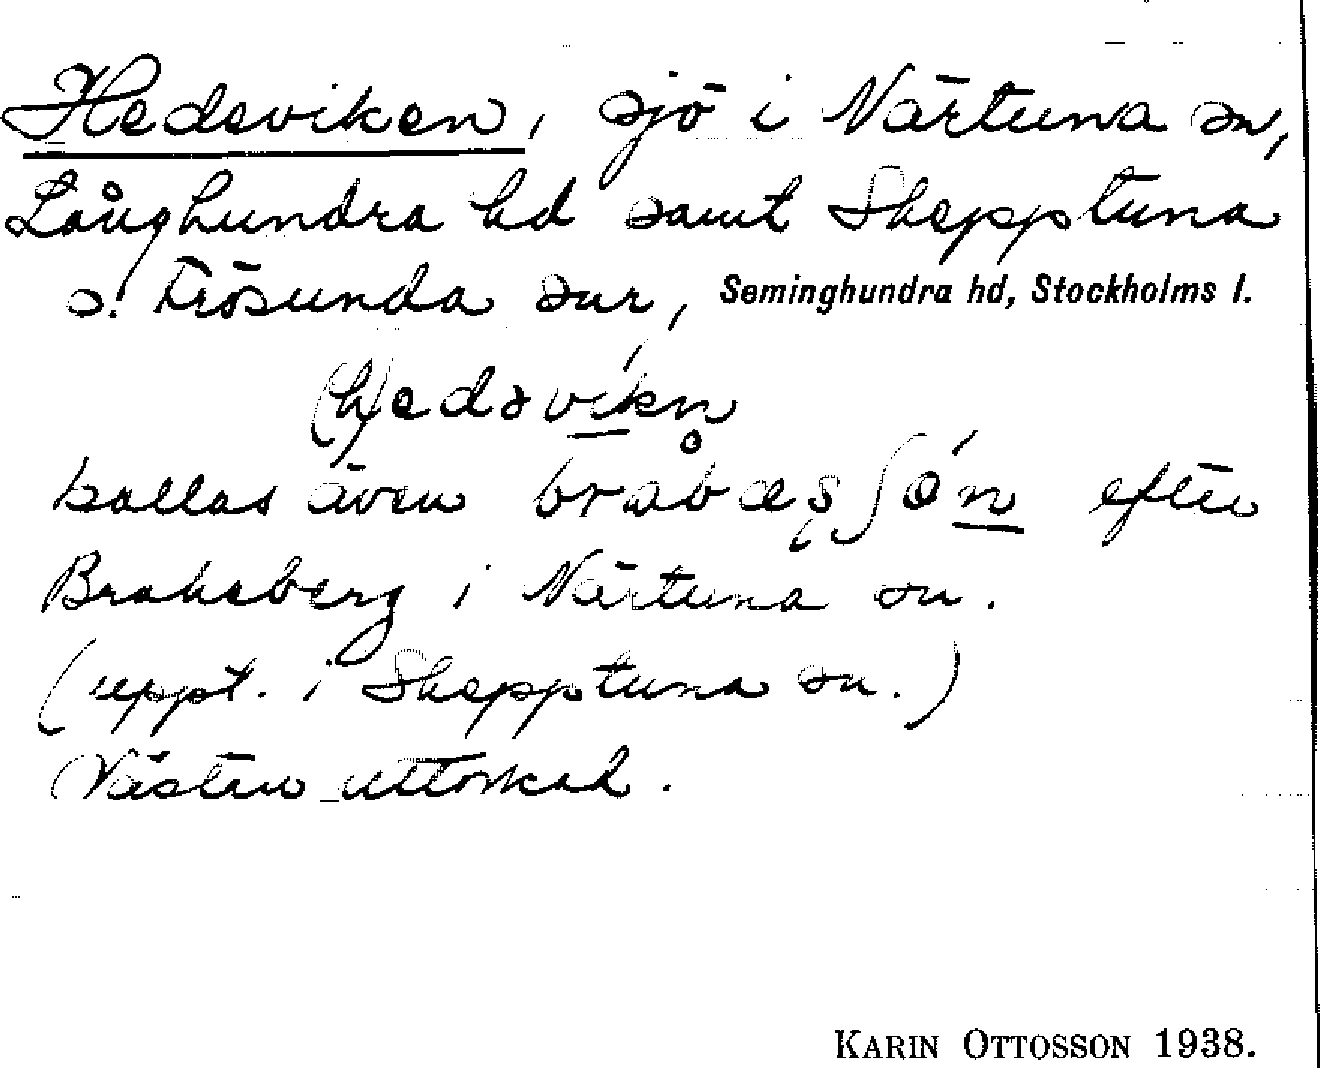 Hedeviken, sjö i Närtuna sn,
Långhundra hd samt Skepptuna
o. Frösunda snr, Seminghundra hd, Stockholms l.
(h)edəvikn
kallas även
efter
Braheberg i Närtuna sn.
(uppt. i Skepptuna sn.)
Nästan uttorkad.
KARIN OTTOSSON 1938.